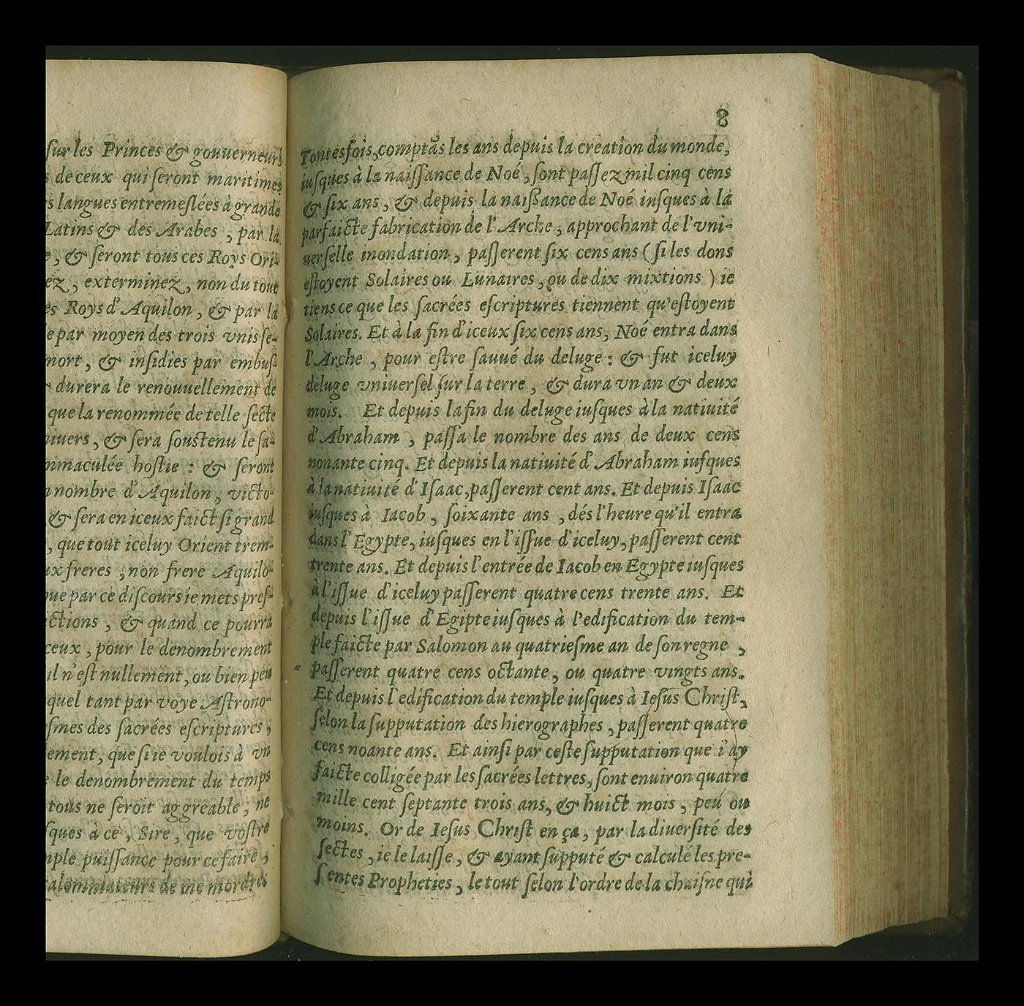 sur les Princes & gouuerneurs
s de ceux qui seront maritimes
s langues entremeslées à grande
Latins & des Arabes, par la
, & seront tous ces Roys Ori-
ez, exterminez, non du tout
es Roys d'Aquilon, & par la
e par moyen des trois vnis se-
mort, & insidies par embus-
durera le renouuellement de
que la renommée de telle secte
niuers, & sera soustenu le sa-
mmaculée hostie : & seront
nombre d'Aquilon, victo-
& sera en iceux faict si grand
, que tout iceluy Orient trem-
ux freres, non frere Aquilo-
ue par ce discours ie mets pres-
ctions, & quand ce pourra
ceux, pour le denombrement
il n'est nullement, ou bien peu
quel tant par voye Astrono-
smes des sacrées escriptures,
ement, que si ie voulois à vn
le denombrement du temps
tous ne seroit aggreable, ne
sques à ce, Sire, que vostre
mple puissance pour ce faire,
calomniateurs de me mordre
8
Toutesfois, comptãs les ans depuis la creation du monde,
iusques à la naissance de Noé, sont passez mil cinq cens
& six ans, & depuis la naißance de Noé iusques à la
parfaicte fabrication de l'Arche, approchant de l'vni-
uerselle inondation, passerent six cens ans ( si les dons
estoyent Solaires ou Lunaires, ou de dix mixtions ) ie
tiens ce que les sacrées escriptures tiennent qu'estoyent
Solaires. Et à la fin d'iceux six cens ans, Noé entra dans
l'Arche, pour estre sauué du deluge : & fut iceluy
deluge vniuersel sur la terre, & dura vn an & deux
mois. Et depuis la fin du deluge iusques à la natiuité
d'Abraham, passa le nombre des ans de deux cens
nonante cinq. Et depuis la natiuité d'Abraham iusques
à la natiuité d'Isaac, passerent cent ans. Et depuis Isaac
iusques à Iacob, soixante ans, dés l'heure qu'il entra
dans l'Egypte, iusques en l'issue d'iceluy, passerent cent
trente ans. Et depuis l'entrée de Iacob en Egypte iusques
à l'issue d'iceluy passerent quatre cens trente ans. Et
depuis l'issue d'Egipte iusques à l'edification du tem-
ple faicte par Salomon au quatriesme an de son regne,
passerent quatre cens octante, ou quatre vingts ans.
Et depuis l'edification du temple iusques à Iesus Christ,
selon la supputation des hierographes, passerent quatre
cens noante ans. Et ainsi par ceste supputation que i'ay
faicte colligée par les sacrées lettres, sont enuiron quatre
mille cent septante trois ans, & huict mois, peu ou
moins. Or de Iesus Christ en ça, par la diuersité des
sectes, ie le laisse, & ayant supputé & calculé les pre-
sentes Propheties, le tout selon l'ordre de la chaisne qui